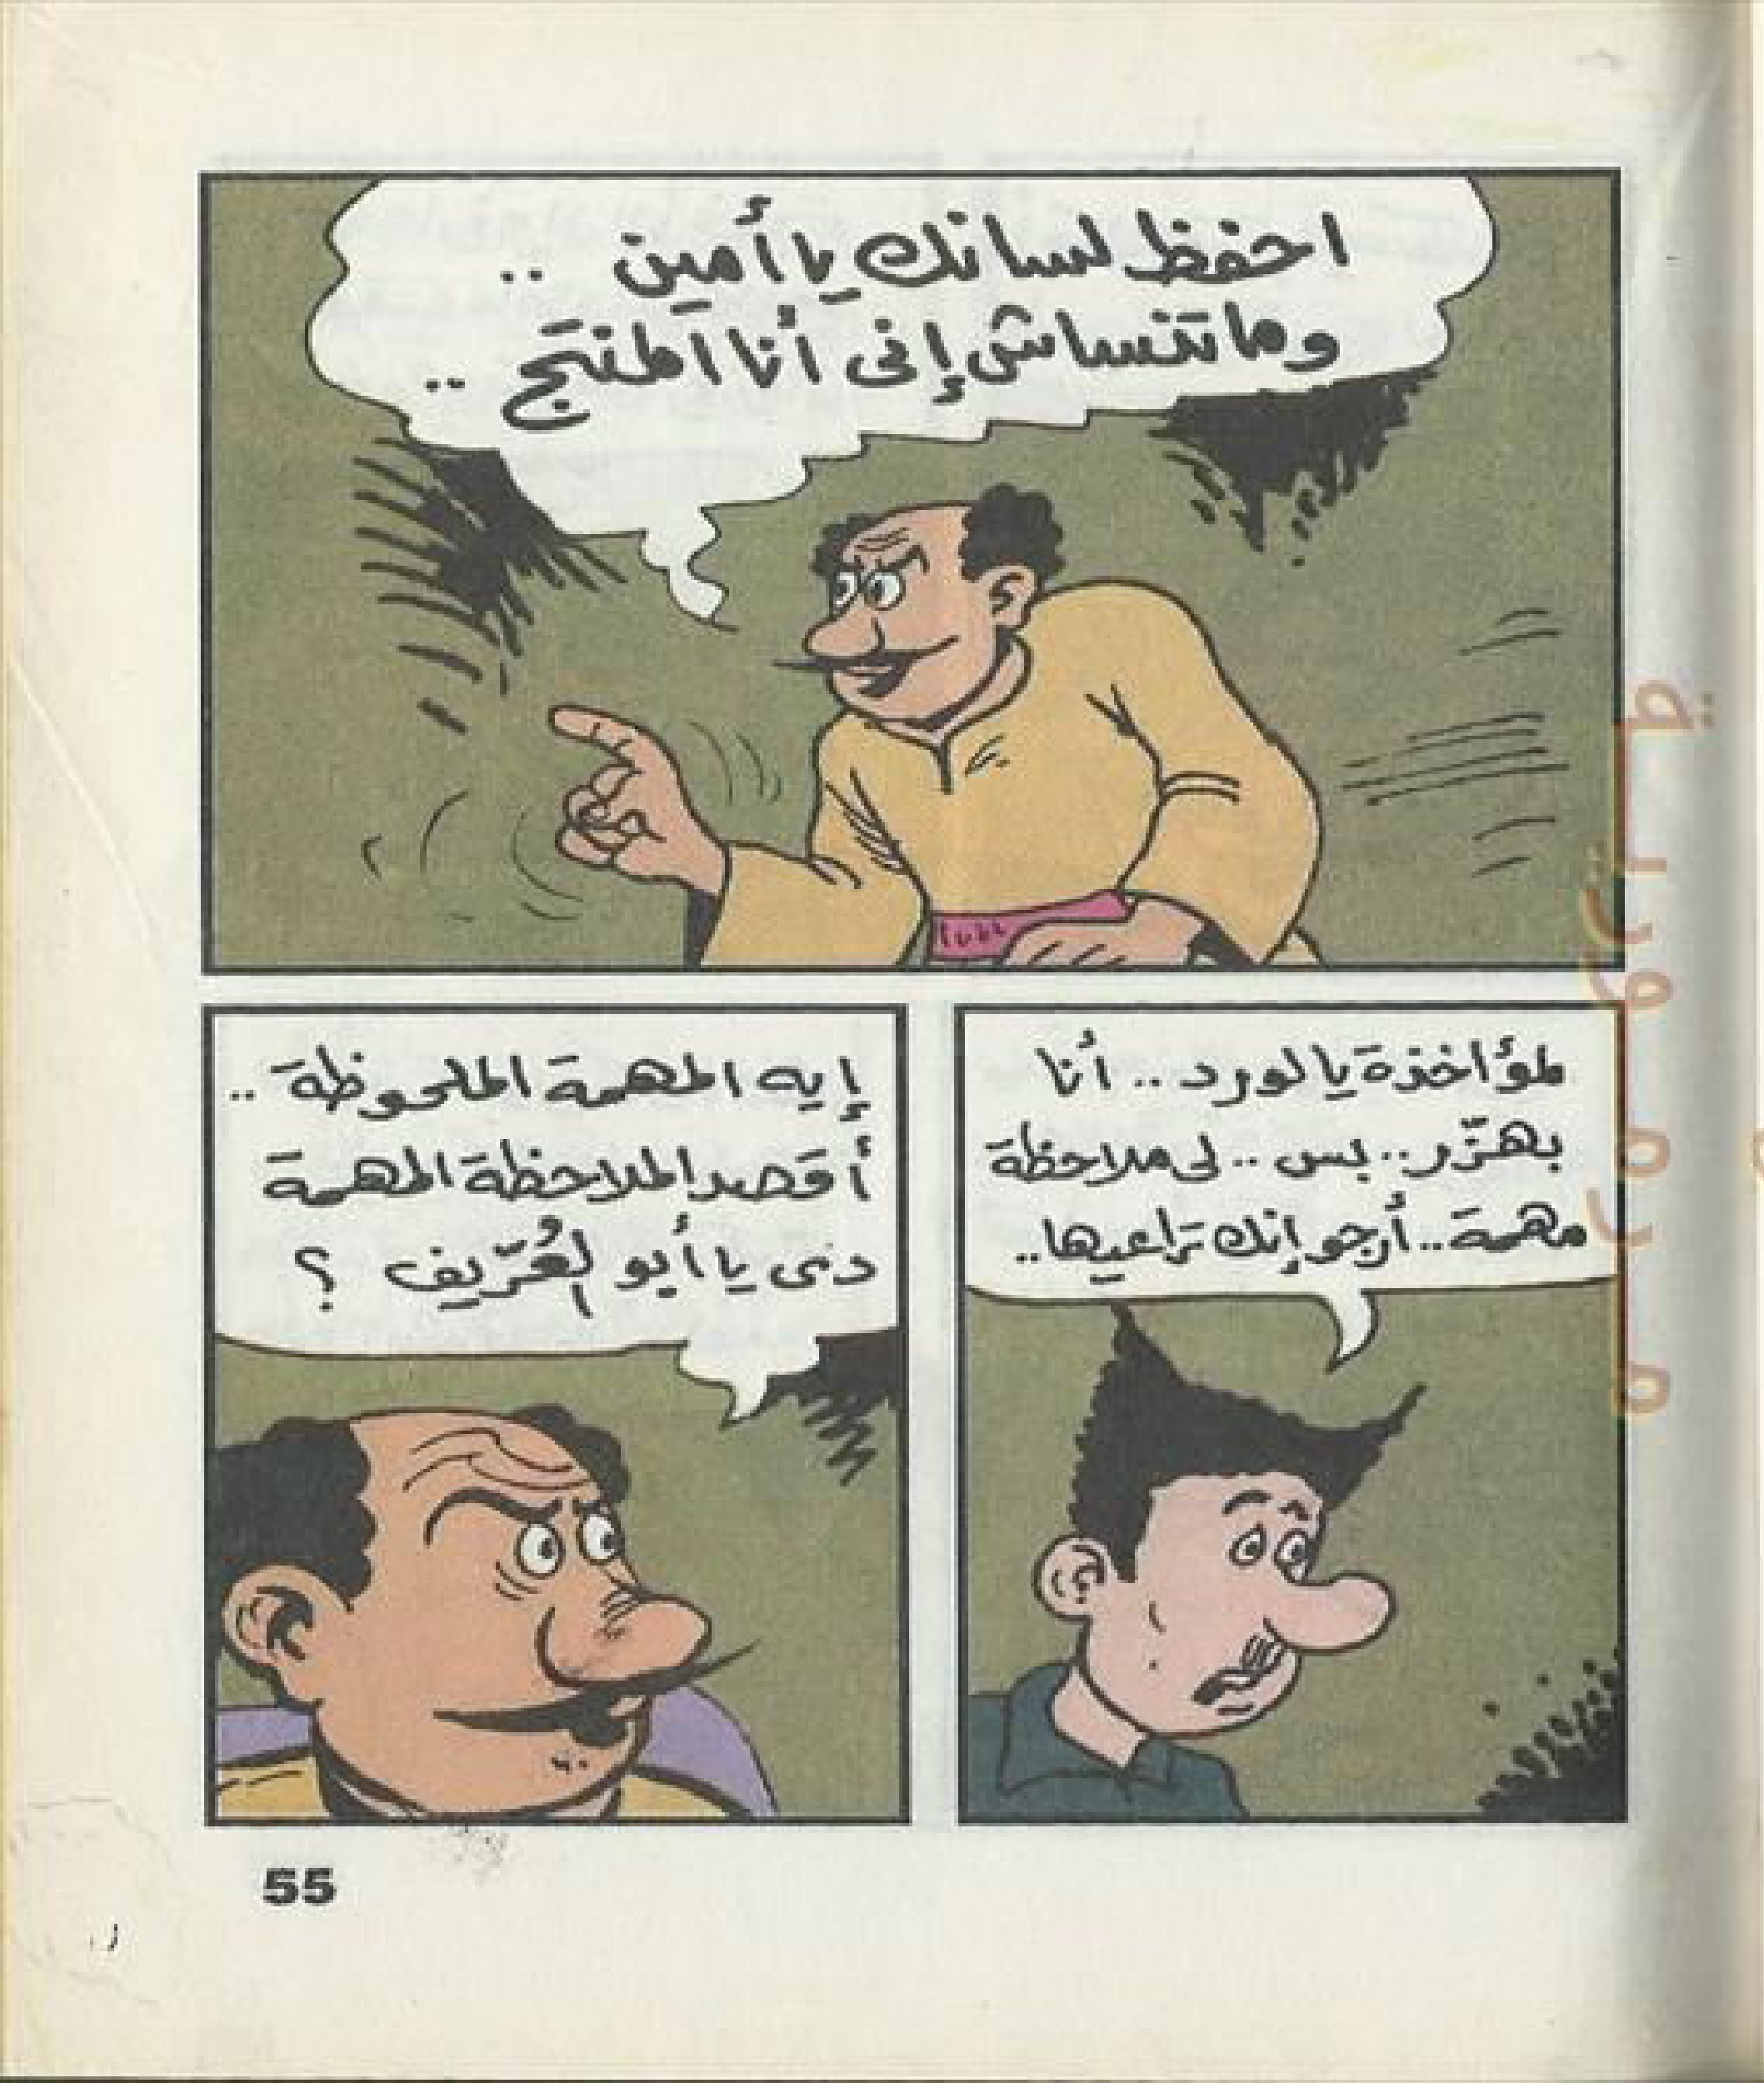 احفظ لسانك يا أمين ..
وماتنساش إنى أنا المنتج ..
لمؤاخذة يا لورد .. أنا
بهزّر .. بس .. لى ملاحظة
مهمة .. أرجو إنك تراعيها ..
إيه المهمة الملحوظة ..
أقصد الملاحظة المهمة
دى يا أبو العُرّيف ؟
55